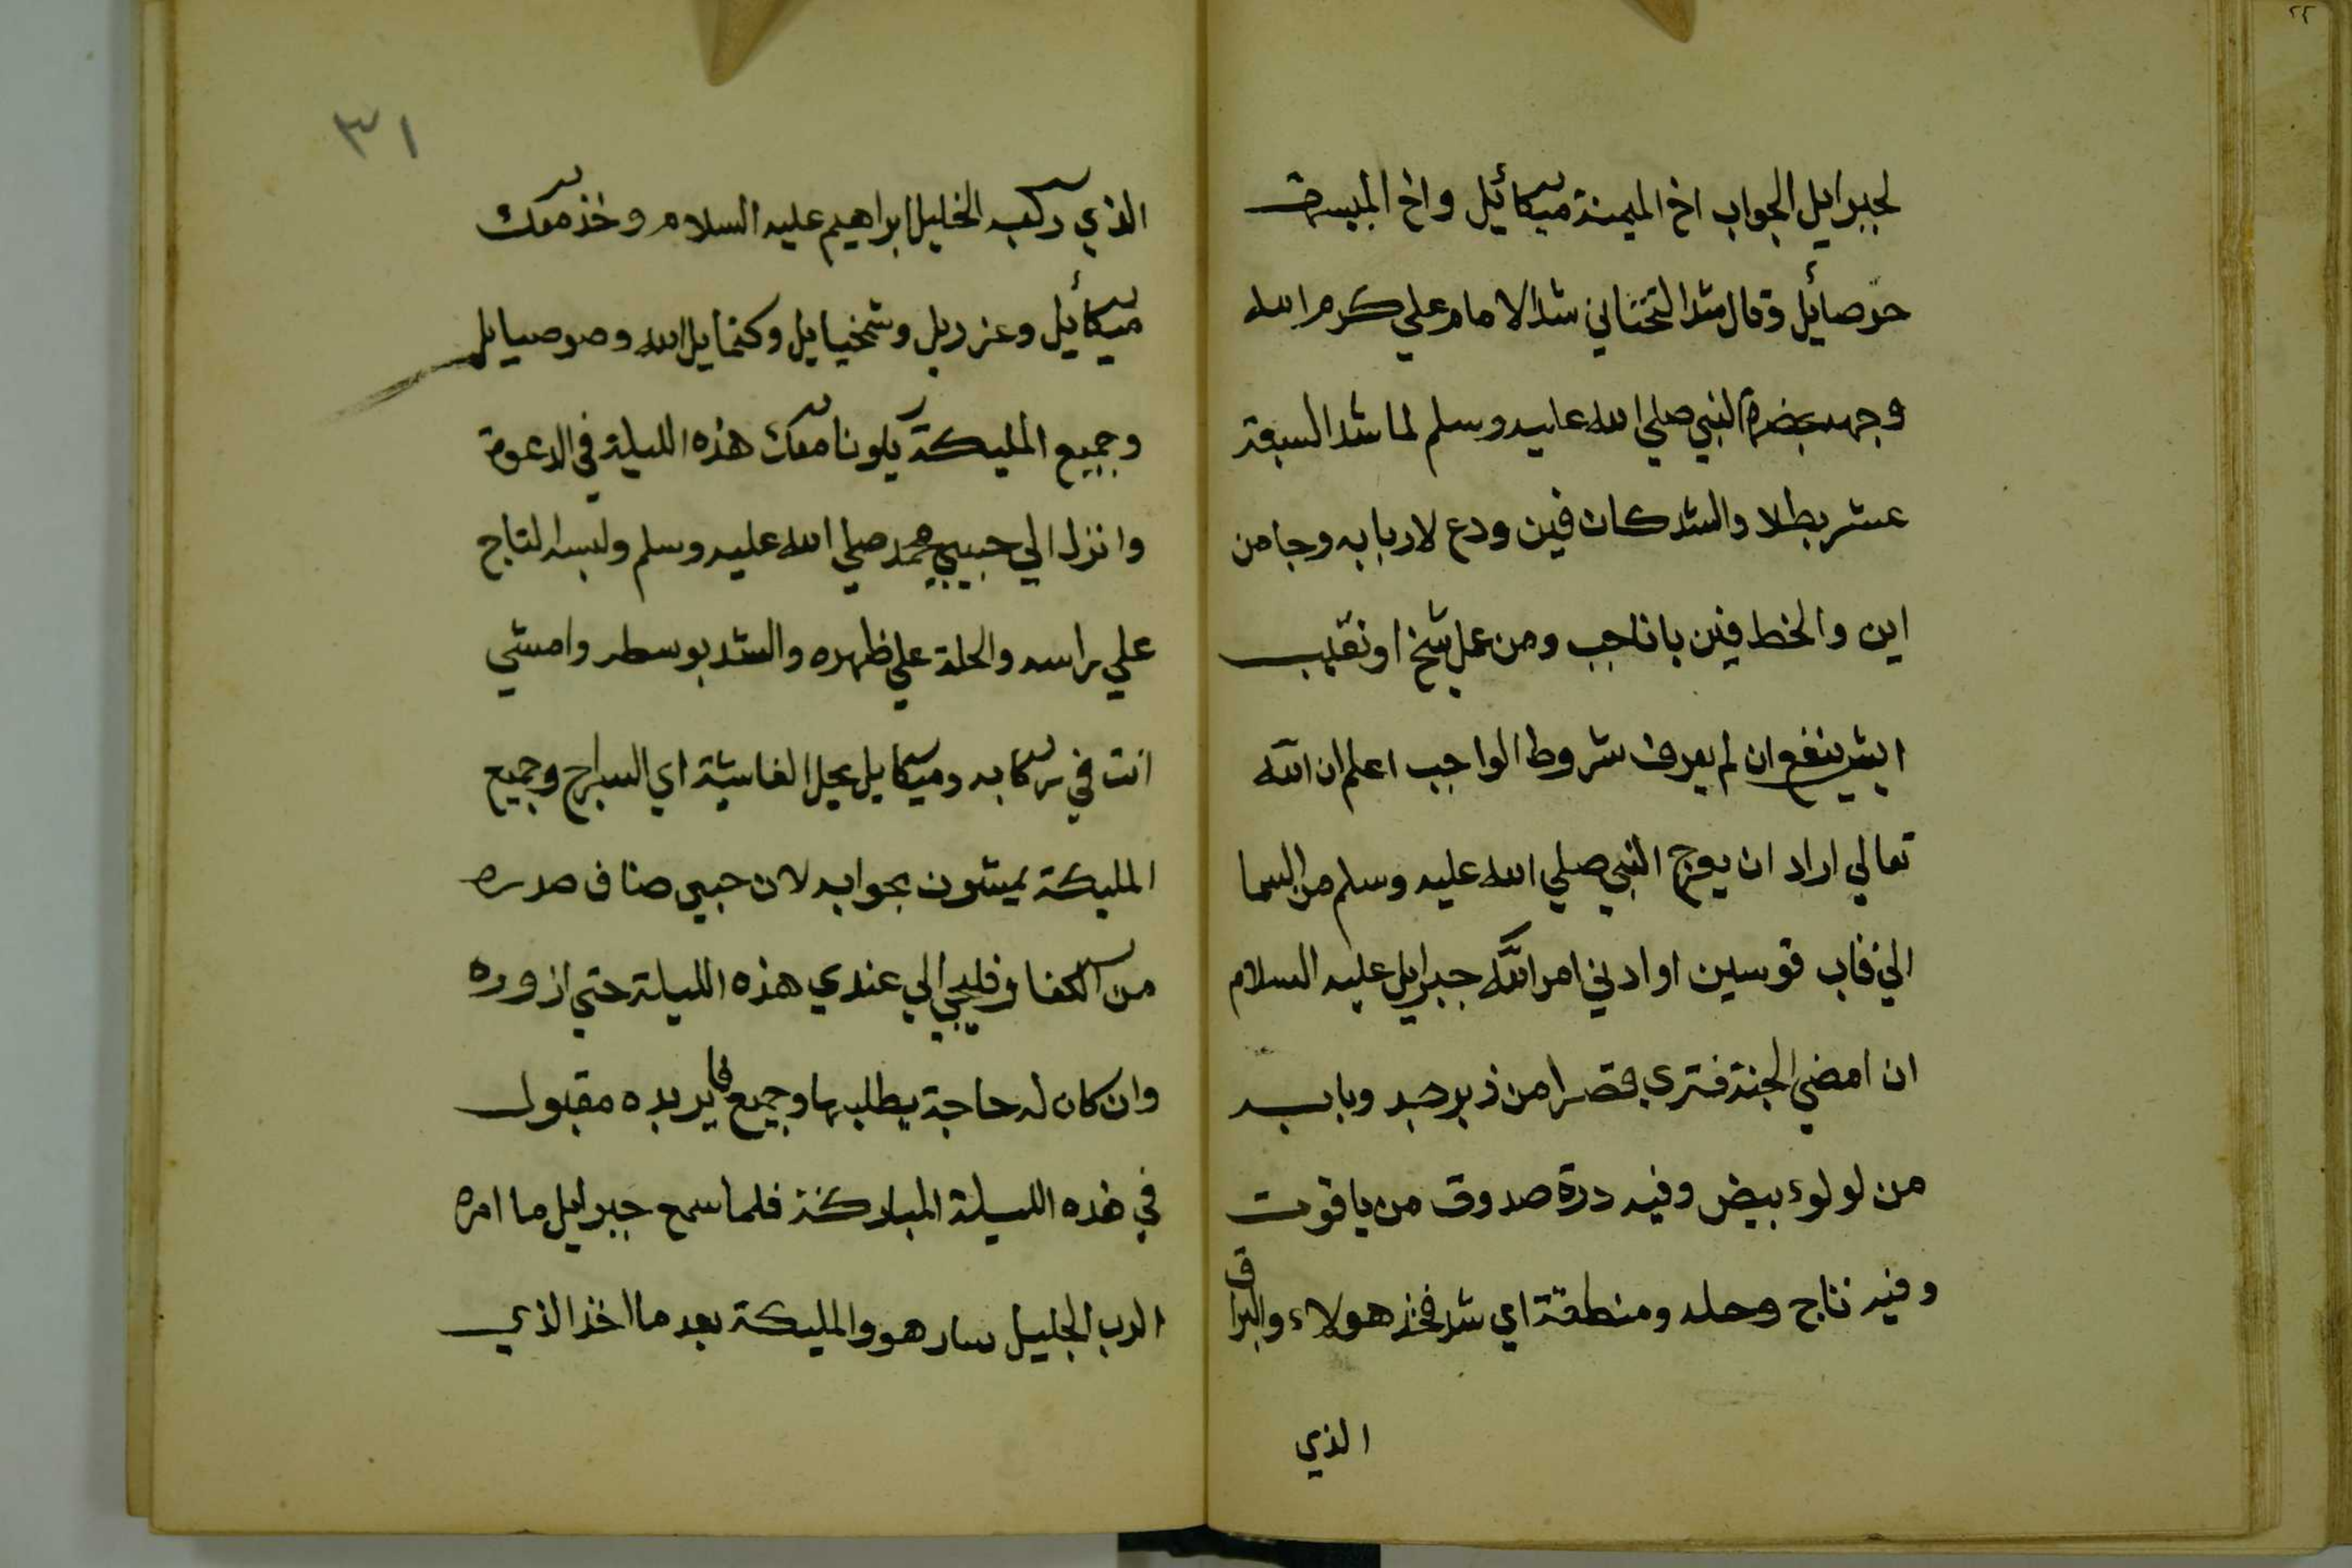 لجبرايل الجواب اخ الميمنة ميكائيل واخ الميسرة
حرصائيل وقال شد التحتاني شد الامام علي كرم الله
وجهه بحضرة النبي صلي الله عليه وسلم لما شد السبعة
عشر بطلا والشد كان فين ودع لاربابه وجا من
اين والخط فين يا ناجب ومن عمل شيخ او نقيب
ايش ينفع ان لم يعرف شروط الواجب اعلم ان الله
تعالي اراد ان يعرج النبي صلي الله عليه وسلم من السما
الي قاب قوسين او ادني امر الله جبرايل عليه السلام
ان امضي الجنة فتري قصرا من زبرجد وبابه
من لولوء بيض وفيه درة صدوق من ياقوت
وفيه تاج وحله ومنطقة اي شد فخذ هولاء والبراق
الذي
٣١
الذي ركبه الخليل ابراهيم عليه السلام وخذ معك
ميكائيل وعزريل وشمخيايل وكنمايل الله وصوصيايل
وجميع المليكة يكونا معك هذه الليلة في الدعوة
وانزل الي حبيبي محمد صلي الله عليه وسلم ولبسه التاج
علي راسه والحلة علي ظهره والشد بوسطه وامشي
انت في ركابه وميكايل يحمل الغاشية اي السراج وجميع
المليكة يمشون بجوابه لان حبيبي ضاق صدره
من الكفار فليجي الي عندي هذه الليلة حتي ازوره
وان كان له حاجة يطلبها وجميع ما يريده مقبول
في هذه الليلة المباركة فلما سمع جبرايل ما امره
الرب الجليل سار هو والمليكة بعد ما اخذ الذي